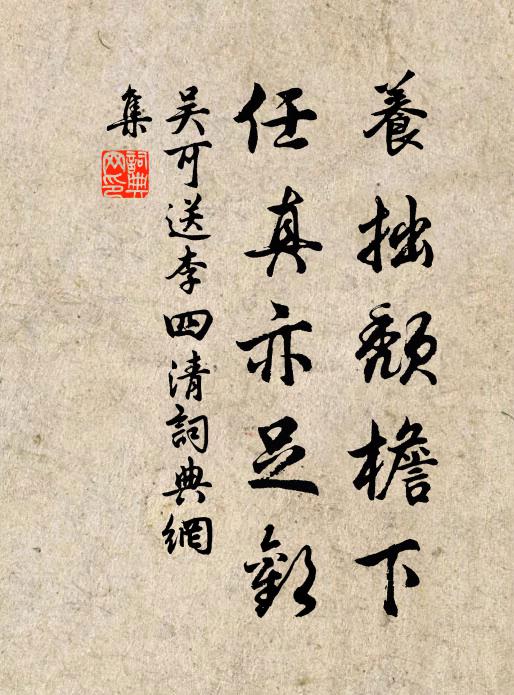 養拙頹檐下
任真亦足歡
吴可送李四清詞典網
集
詞典
网印